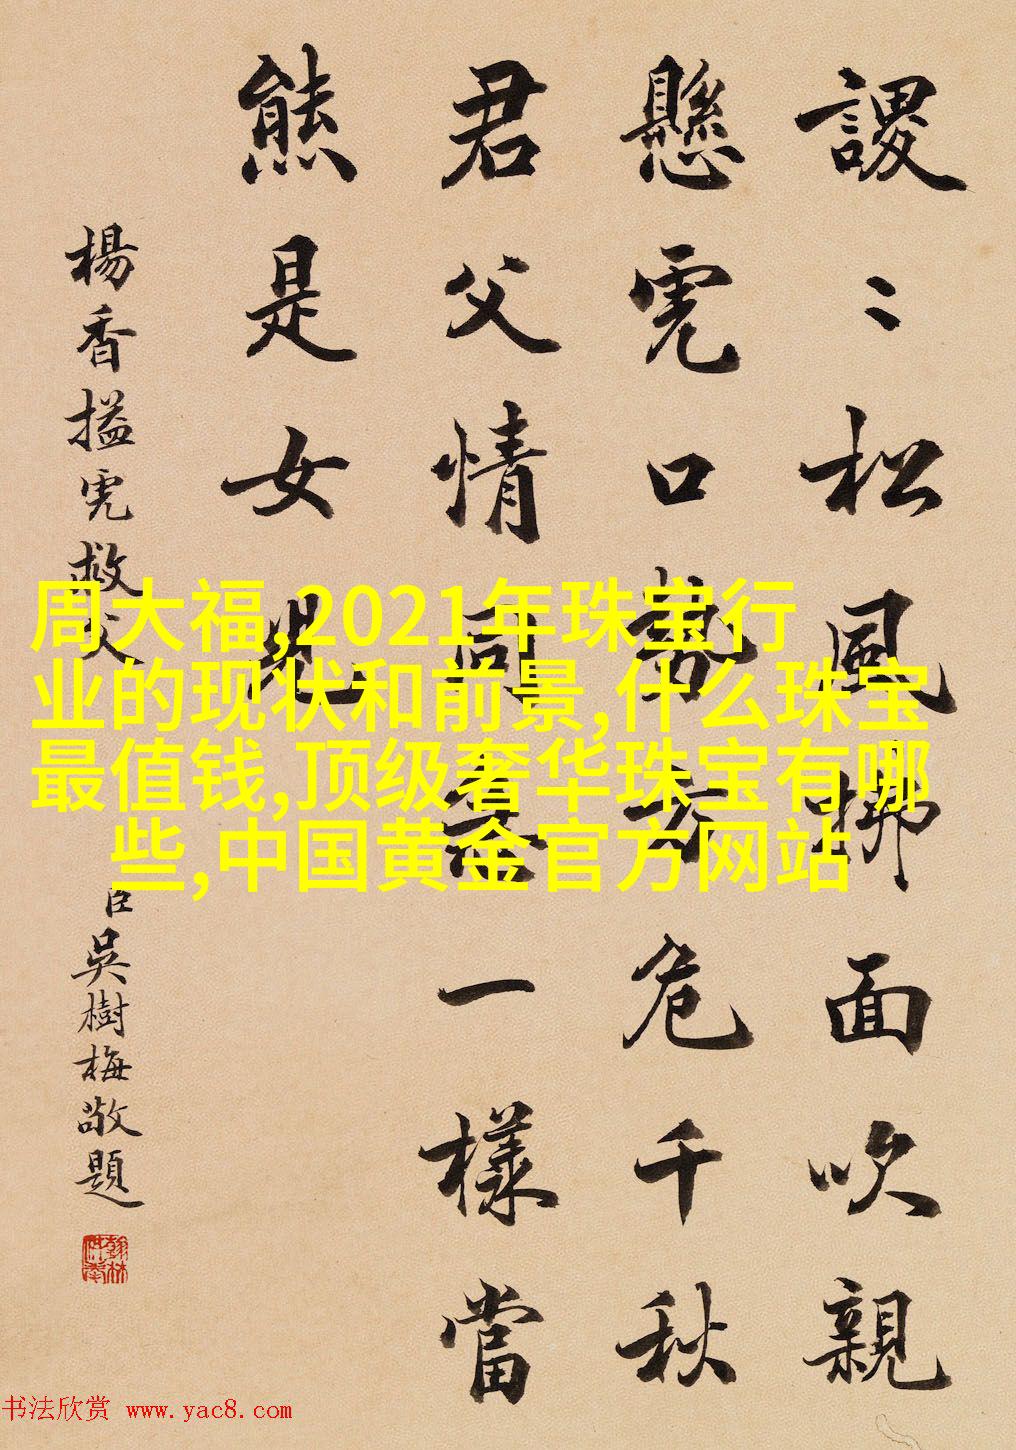 謖〻松風拂面吹親
懸虎口勢危千秋
君父情同一樣當
熊是女兒
楊香搤虎救父
臣吳樹梅敬題
周大福,2021年珠宝行
业的现状和前景,什么珠宝
最值钱,顶级奢华珠宝有哪
些,中国黄金官方网站
书法欣赏 www.yac8.com